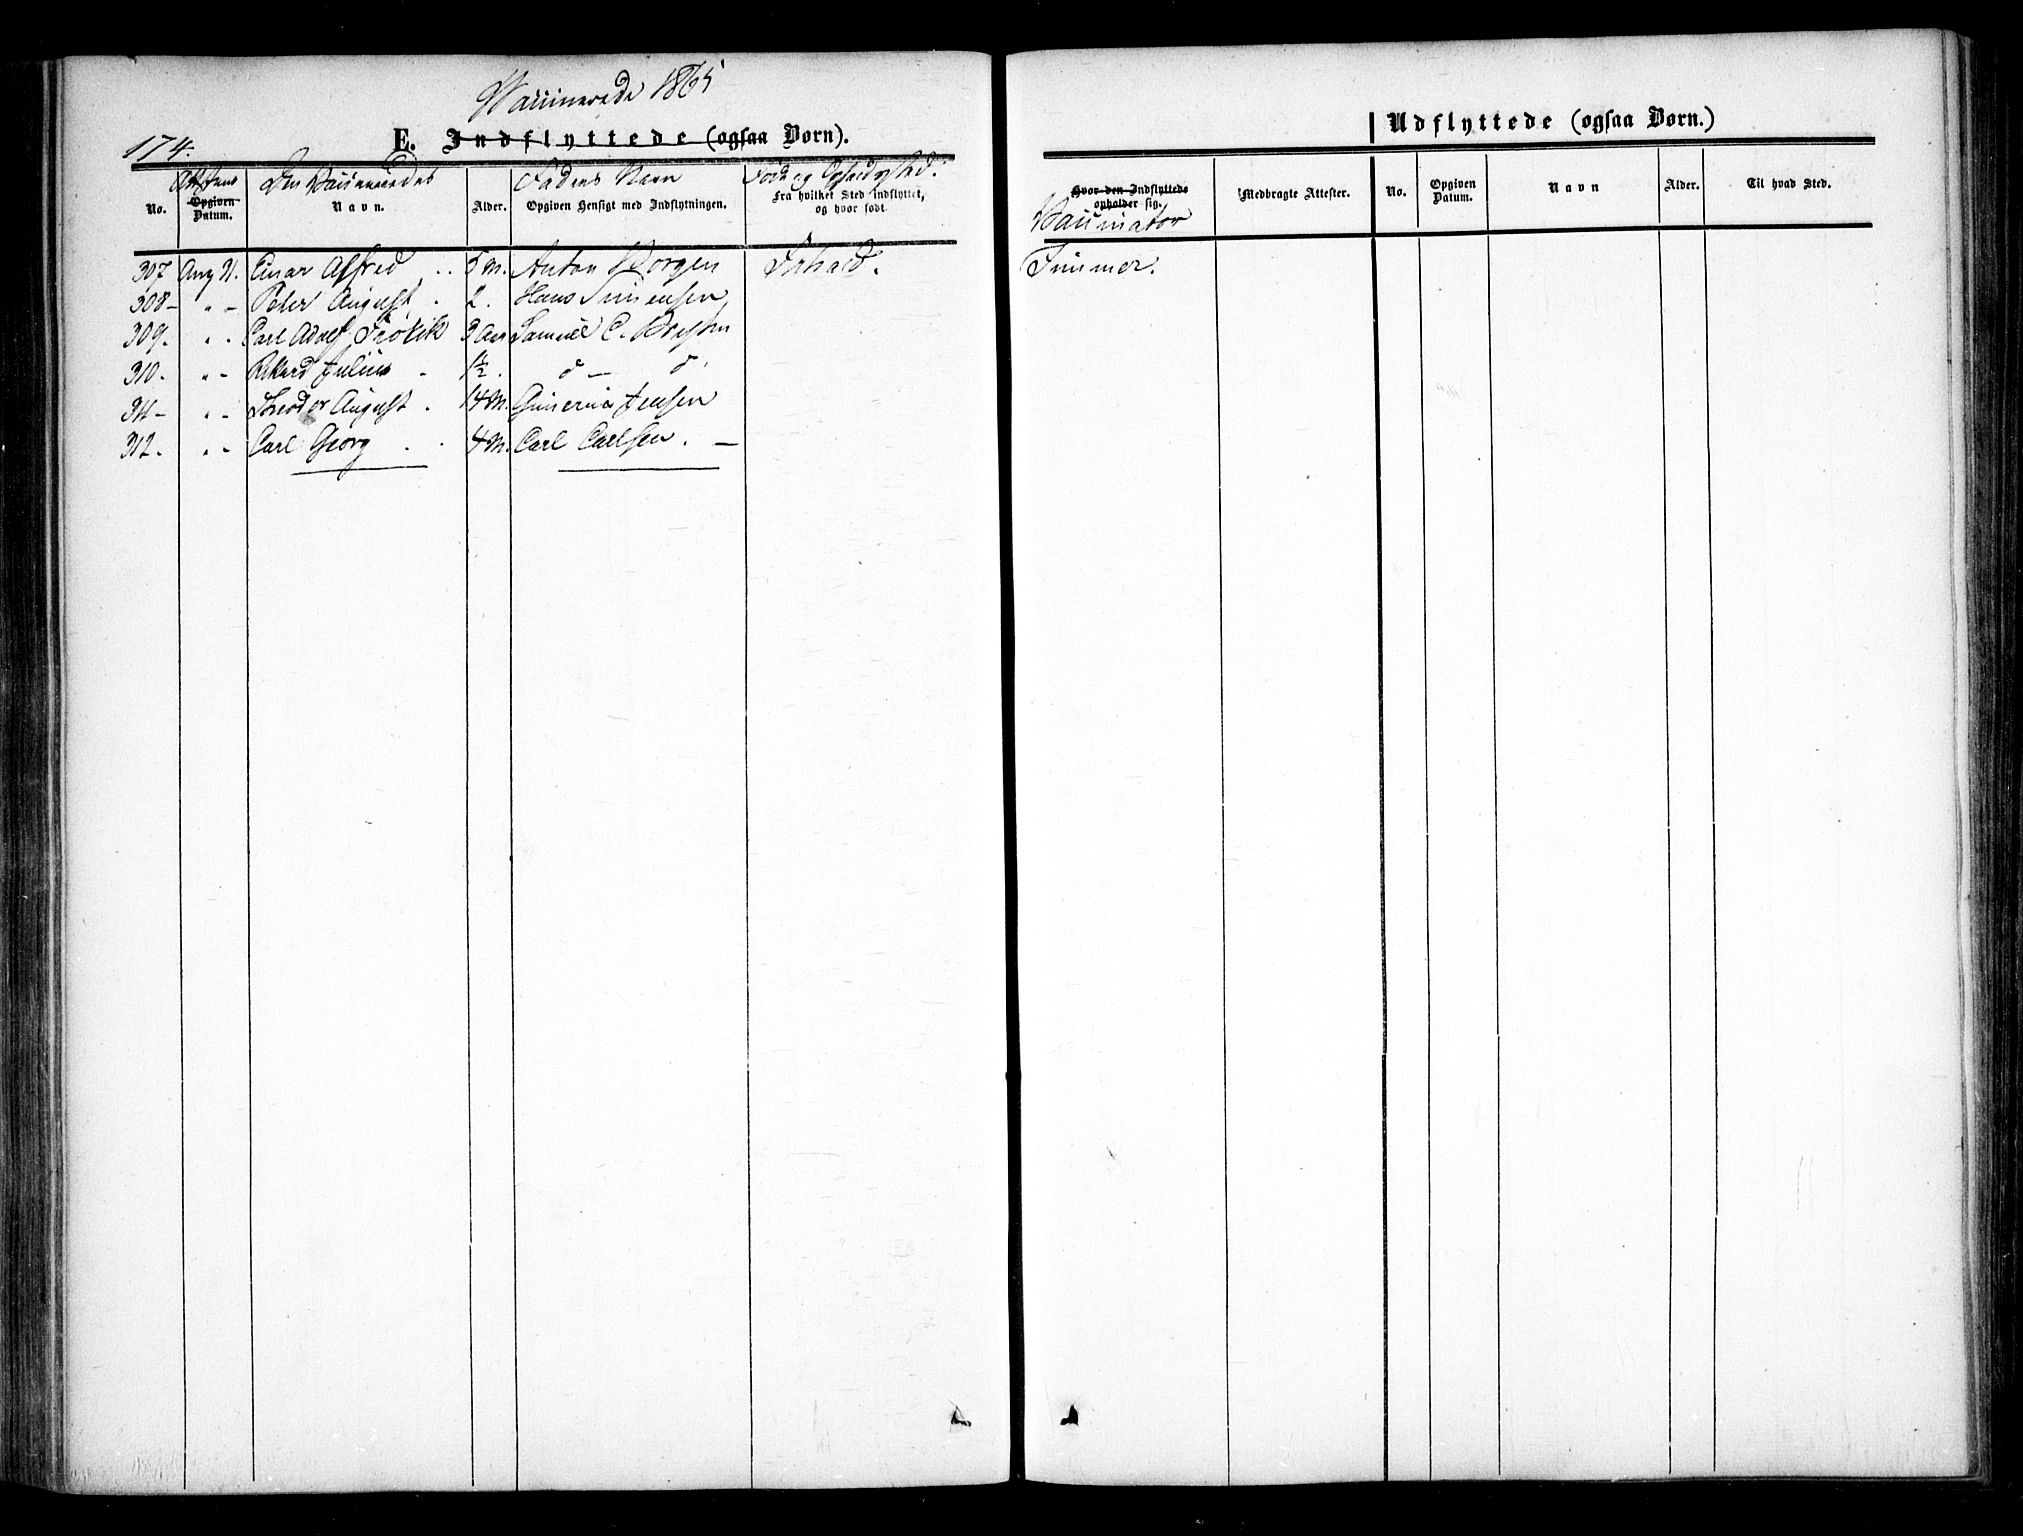 Vaccinerede 1865
174.
E. Indflyttede (ogsaa Børn).
Udflyttede (ogsaa Børn.)
Attestens Den Vaccineredes Faderens Navn Føde og Opholdssted.
No. Opgiven Datum. Navn. Alder. Opgiven Hensigt med Indflytningen. Fra hvilket Sted indflyttet, og hvor født.
Hvor den Indflyttede opholder sig. Medbragte Attester. No. Opgiven Datum. Navn Alder. Til hvad Sted.
Vaccinator
307 Aug 21. Einar Alfred 5 M. Anton Borgen Frhald. Timmer.
308 - " - Peter August. 2. Hans Simensen
309. " - Carl Adolf Fredrik 3 Aar Samuel C.
310. " - Rikard Julius - 1½. d - d.
311 - " - Theodor August. 14 M. Gunerius Jensen
312. " - Carl Georg 4 M. Carl Carlsen. -